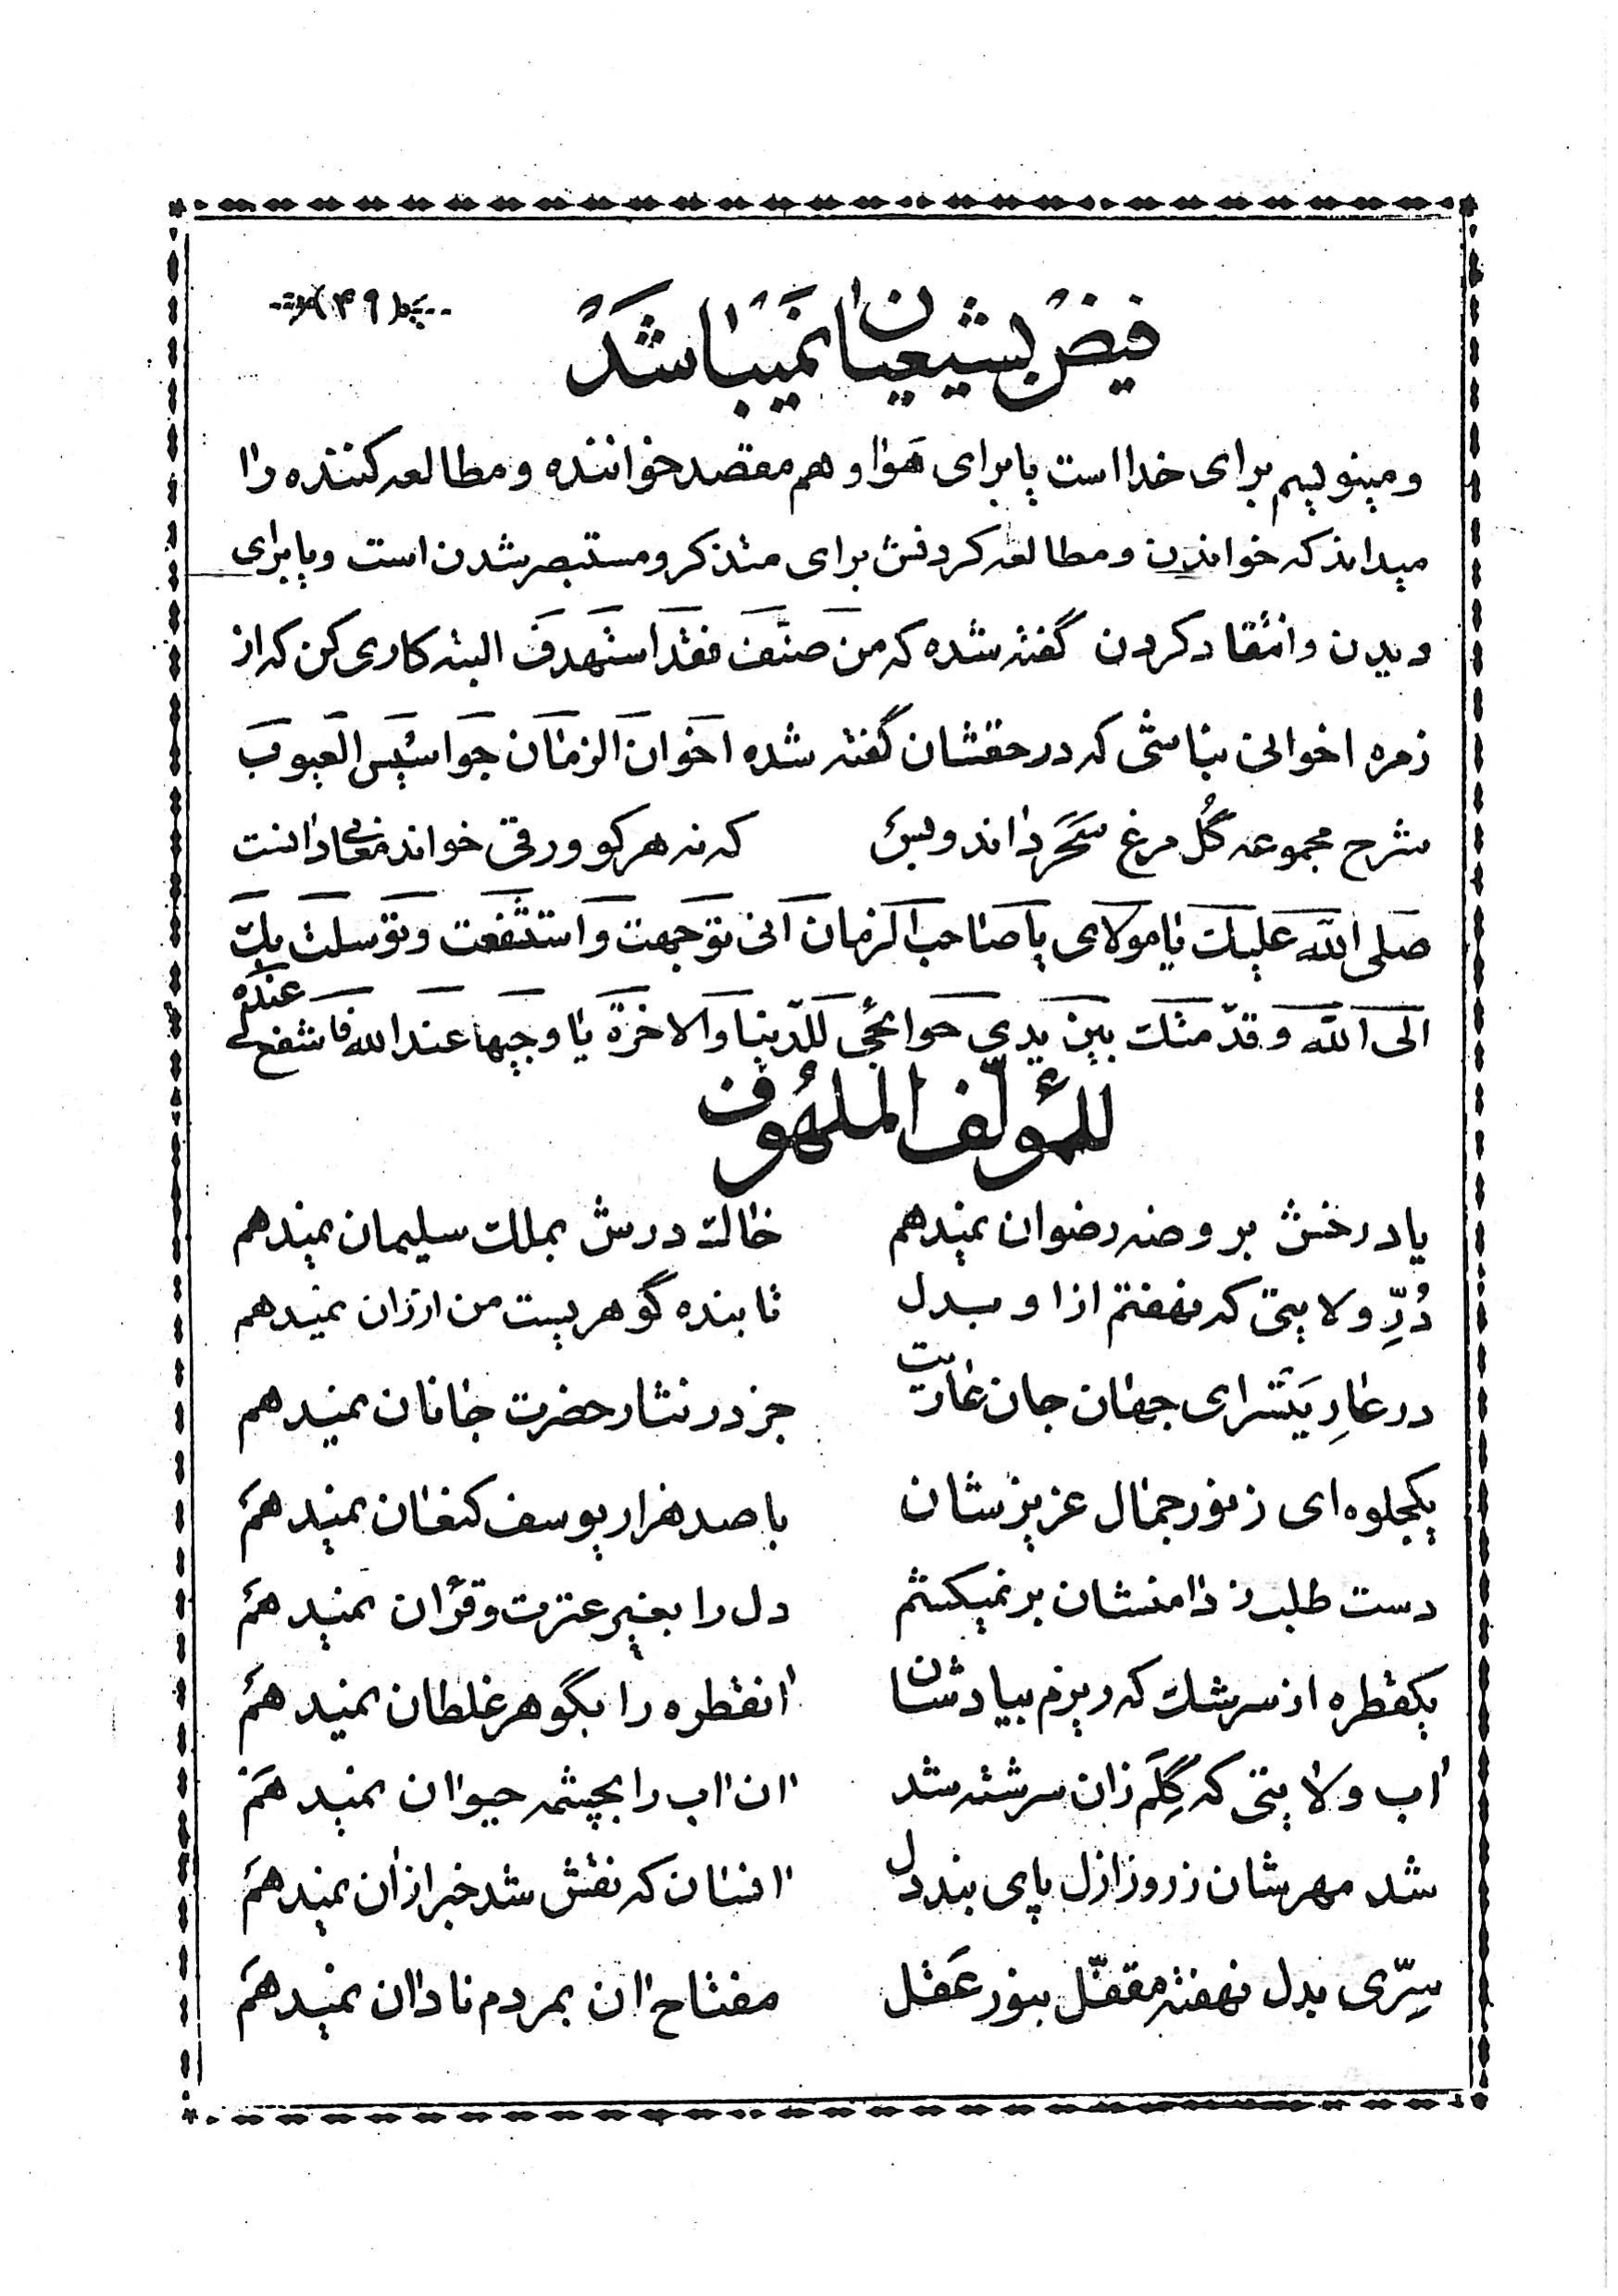 ۴۹
فیض بشیعیان نمیباشد
و مینویسم برای خدا است یا برای هوا و هم مقصد خواننده و مطالعه کننده را
میداند که خواندن و مطالعه کردنش برای متذکر و مستبصر شدن است و یا برای
دیدن و انتقاد کردن گفته شده که مَن صَنَّفَ فَقَد استَهدَفَ البته کاری کن که از
زمره اخوانی نباشی که در حقشان گفته شده اخوان الزمان جواسیس العیوب
شرح مجموعه گُل مرغ سَحَر داند و بس که نه هر کو ورقی خواند معانی دانست
صلی الله علیک یا مولای یا صاحب الزمان انی توجهت و استشفعت و توسلت بک
الی الله و قدّمتک بین یدی حوائجی للدّنیا و الاخرة یا وجیها عند الله فاشفع لی عنده
للمؤلّف الملهُوف
یاد رخش بروضه رضوان نمیدهم خاک درش بملک سلیمان نمیدهم
دُرِّ ولایتی که نهفتم از او بدل تابنده گوهریست من ارزان نمیدهم
در غارِ یَثرای جهان جان عاریت جز در نثار حضرت جانان نمیدهم
یکجلوه ای ز نور جمال عزیزشان با صد هزار یوسف کنعان نمیدهم
دست طلب ز دامنشان بر نمیکشم دل را بغیر عترت و قرآن نمیدهم
یکقطره از سرشک که ریزم بیادشان انقطره را بگوهر غلطان نمیدهم
اب ولایتی که گِلَم زان سرشته شد ان اب را بچشمه حیوان نمیدهم
شد مهرشان ز روز ازل پای بند دل انسان که نقش شد خبر از ان نمیدهم
سِرّی بدل نهفته مقفّل بنور عَقل مفتاح ان بمردم نادان نمیدهم